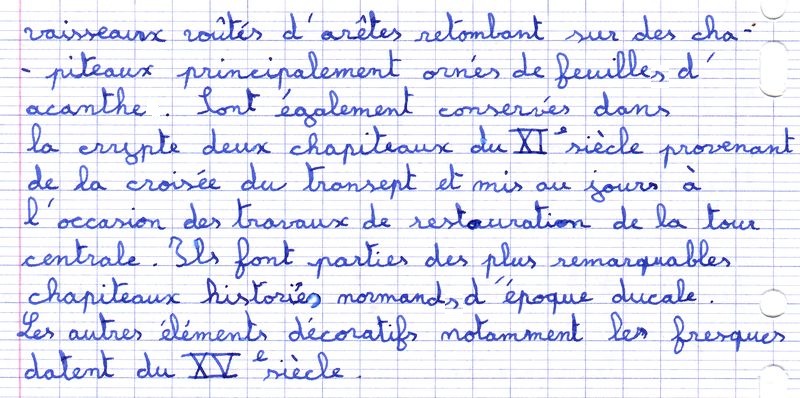 vaisseaux voûtés d'arêtes retombant sur des cha-
- piteaux principalement ornés de feuilles d'
acanthe. Sont également conservés dans
la crypte deux chapiteaux du XIe siècle provenant
de la croisée du transept et mis au jours à
l'occasion des travaux de restauration de la tour
centrale. Ils font parties des plus remarquables
chapiteaux historiés normands d'époque ducale.
Les autres éléments décoratifs notamment les fresques
datent du XVe siècle.